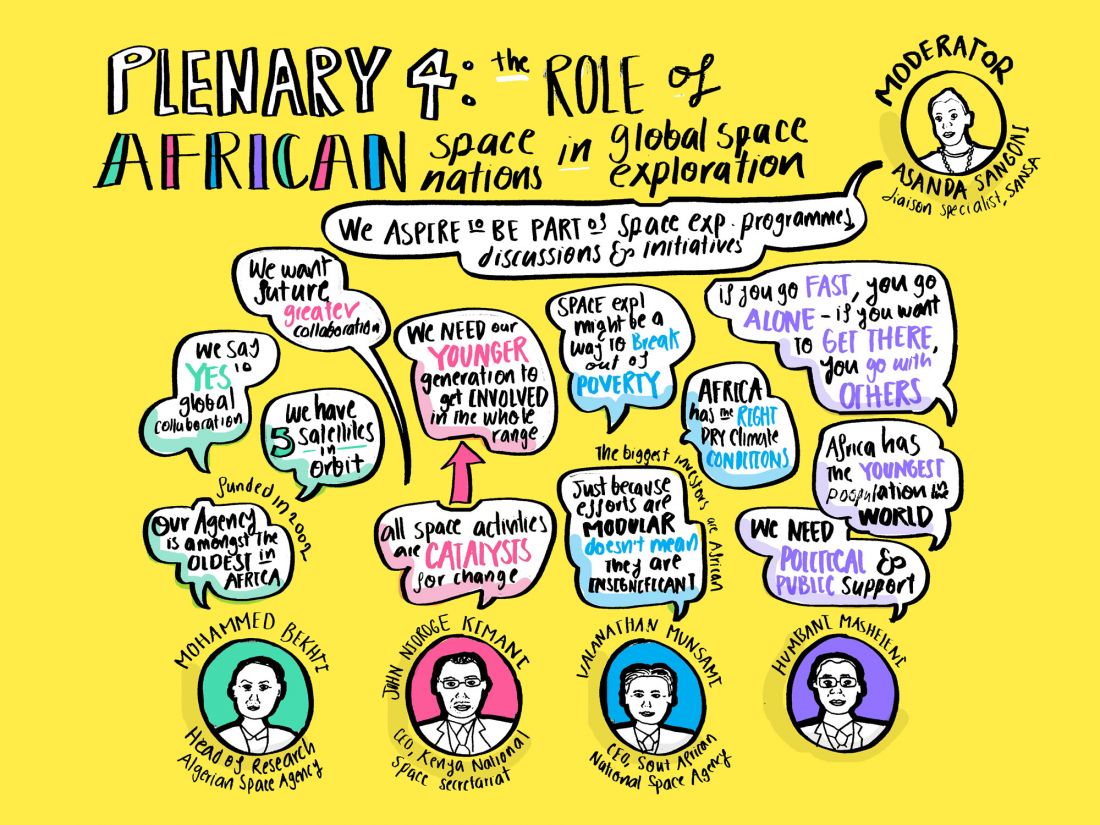 PLENARY 4: the ROLE of
AFRICAN space nations in global space exploration
MODERATOR
ASANDA SANGONI
liaison specialist, SANSA
We ASPIRE to BE PART of space exp. programmes,
discussions & initiatives
We want
future
greater
collaboration
we say
YES to
global
collaboration
we have
5 satellites
in
orbit
funded in 2002
our Agency
is amongst the
OLDEST in
AFRICA
MOHAMMED BEKHTI
Head of Research
Algerian Space Agency
WE NEED our
YOUNGER
generation to
get INVOLVED
in the whole
range
all space activities
are CATALYSTS
for change
JOHN NJOROGE KIMANI
CEO, Kenya National
Space secretariat
SPACE expl
might be a
way to Break
out of
POVERTY
AFRICA
has the RIGHT
DRY climate
CONDITIONS
The biggest investors are African
Just because
efforts are
MODULAR
doesn't mean
they are
INSIGNIFICANT
VALANATHAN MUNSAMI
CEO, Sout African
National Space Agency
if you go FAST, you go
ALONE - if you want
to GET THERE,
you go with
OTHERS
Africa has
the YOUNGEST
poopulation in the
WORLD
WE NEED
POLITICAL &
PUBLIC support
HUMBANI MASHELENI